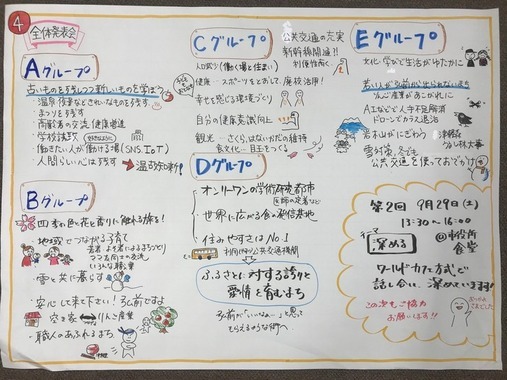 4
全体発表会
Aグループ
古いものを残しつつ新しいものを学ぼう
・温泉・夜景などきれいなものを残す
・まつりを残す
・高齢者の交流(健康増進)
・学校試験
・働きたい人が働ける場(SNS.IoT)
・人間らしい心は残す
→温故知新!
Bグループ
四季の色の花と香りに触れる旅を!
・地域でつながる子育て
いろんな職業
・雪と共に暮らす
・安心して来て下さい!弘前ですよ
・空き家 りんご産業
・職人のあふれるまち
Cグループ
公共交通の充実
利便性向上
人口減少(働く場と住まい)
健康…スポーツをとおして、廃校活用!
幸せを感じる環境づくり
自分の健康意識向上
観光…さくら、はないかだの維持
食文化…目玉をつくる
Dグループ
・オンリーワンの学術研究都市
・世界に広がる食の発信基地
・住みやすさはNo.1
ふるさとに対する誇りと
愛情を育むまち
弘前が「いいなぁ〜」と思って
もらえるような街へ
Eグループ
文化・学など生活がゆたかに
若い人が弘前から出られないまち
りんご産業があこがれに
AIなどで人手不足解消
ドローンでカラス退治
岩木山にぎわう
雪対策、冬でも
公共交通を使っておでかけ
第2回 9月29日(土)
13:30〜16:00
@市役所
食堂
テーマ
深める
ワールドカフェ方式で
話し合い、深めていきます!
この次もご協力
お願いします!!